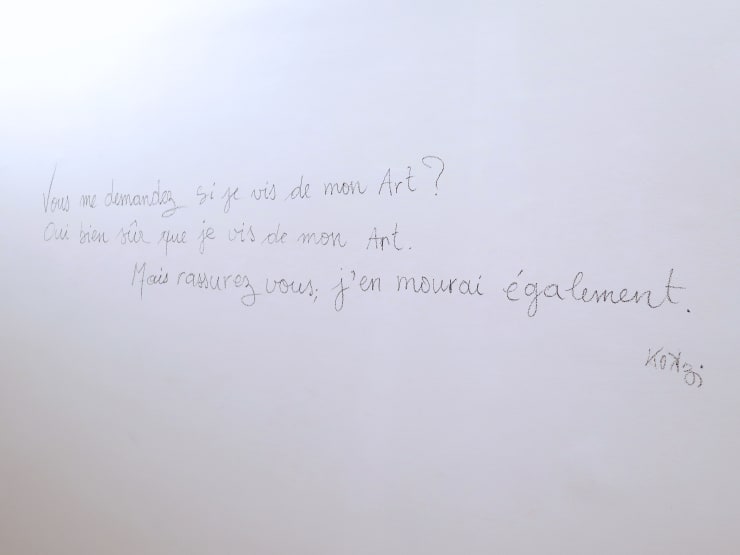 Vous me demandez si je vis de mon Art ?
Oui bien sûr que je vis de mon Art.
Mais rassurez vous, j'en mourai également.
KOKzi